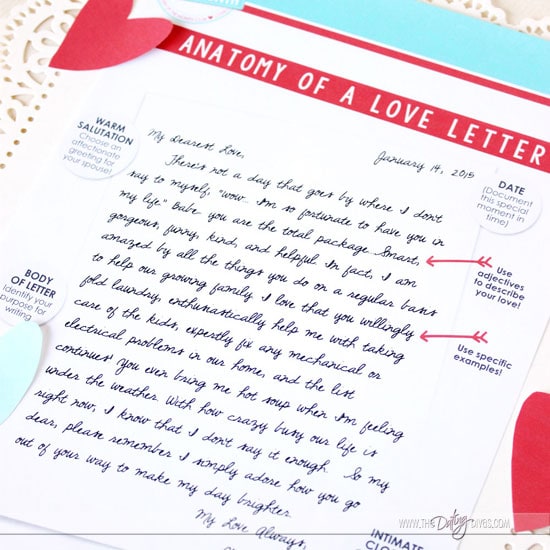 ANATOMY OF A LOVE LETTER
WARM
SALUTATION
Choose an
affectionate
greeting for
your spouse!
My Dearest Love,
January 14, 2015
DATE
(Document
this special
moment in
time)
There's not a day that goes by where I don't
say to myself, "wow. I'm so fortunate to have you in
my life." Babe you are the total package. Smart,
gorgeous, funny, kind, and helpful. In fact, I am
amazed by all the things you do on a regular basis
to help our growing family. I love that you willingly
fold laundry, enthusiastically help me with taking
care of the kids, expertly fix any mechanical or
electrical problems in our home, and the list
continues! You even bring me hot soup when I'm feeling
under the weather. With how crazy busy our life is
right now, I know that I don't say it enough. So my
dear, please remember I simply adore how you go
out of your way to make my day brighter.
My Love Always,
Use
adjectives
to describe
your love!
Use specific
examples!
BODY
OF LETTER
Identify your
purpose for
writing
INTIMATE
WWW.THEDatingDIVAS.COM